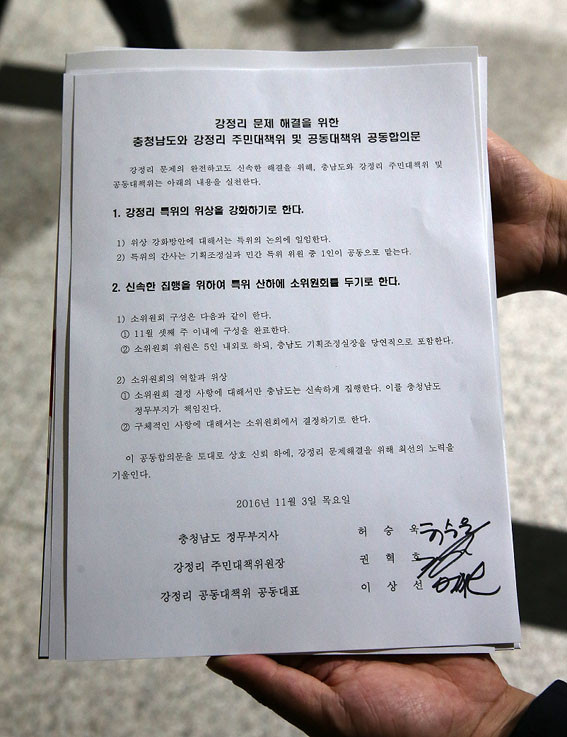 강정리 문제 해결을 위한
충청남도와 강정리 주민대책위 및 공동대책위 공동합의문
강정리 문제의 완전하고도 신속한 해결을 위해, 충남도와 강정리 주민대책위 및
공동대책위는 아래의 내용을 실천한다.
1. 강정리 특위의 위상을 강화하기로 한다.
1) 위상 강화방안에 대해서는 특위의 논의에 일임한다.
2) 특위의 간사는 기획조정실과 민간 특위 위원 중 1인이 공동으로 맡는다.
2. 신속한 집행을 위하여 특위 산하에 소위원회를 두기로 한다.
1) 소위원회 구성은 다음과 같이 한다.
① 11월 셋째 주 이내에 구성을 완료한다.
② 소위원회 위원은 5인 내외로 하되, 충남도 기획조정실장을 당연직으로 포함한다.
2) 소위원회의 역할과 위상
① 소위원회 결정 사항에 대해서만 충남도는 신속하게 집행한다. 이를 충청남도
정무부지가 책임진다.
② 구체적인 사항에 대해서는 소위원회에서 결정하기로 한다.
이 공동합의문을 토대로 상호 신뢰 하에, 강정리 문제해결을 위해 최선의 노력을
기울인다.
2016년 11월 3일 목요일
충청남도 정무부지사 허 승 욱
강정리 주민대책위원장 권 혁 호
강정리 공동대책위 공동대표 이 상 선